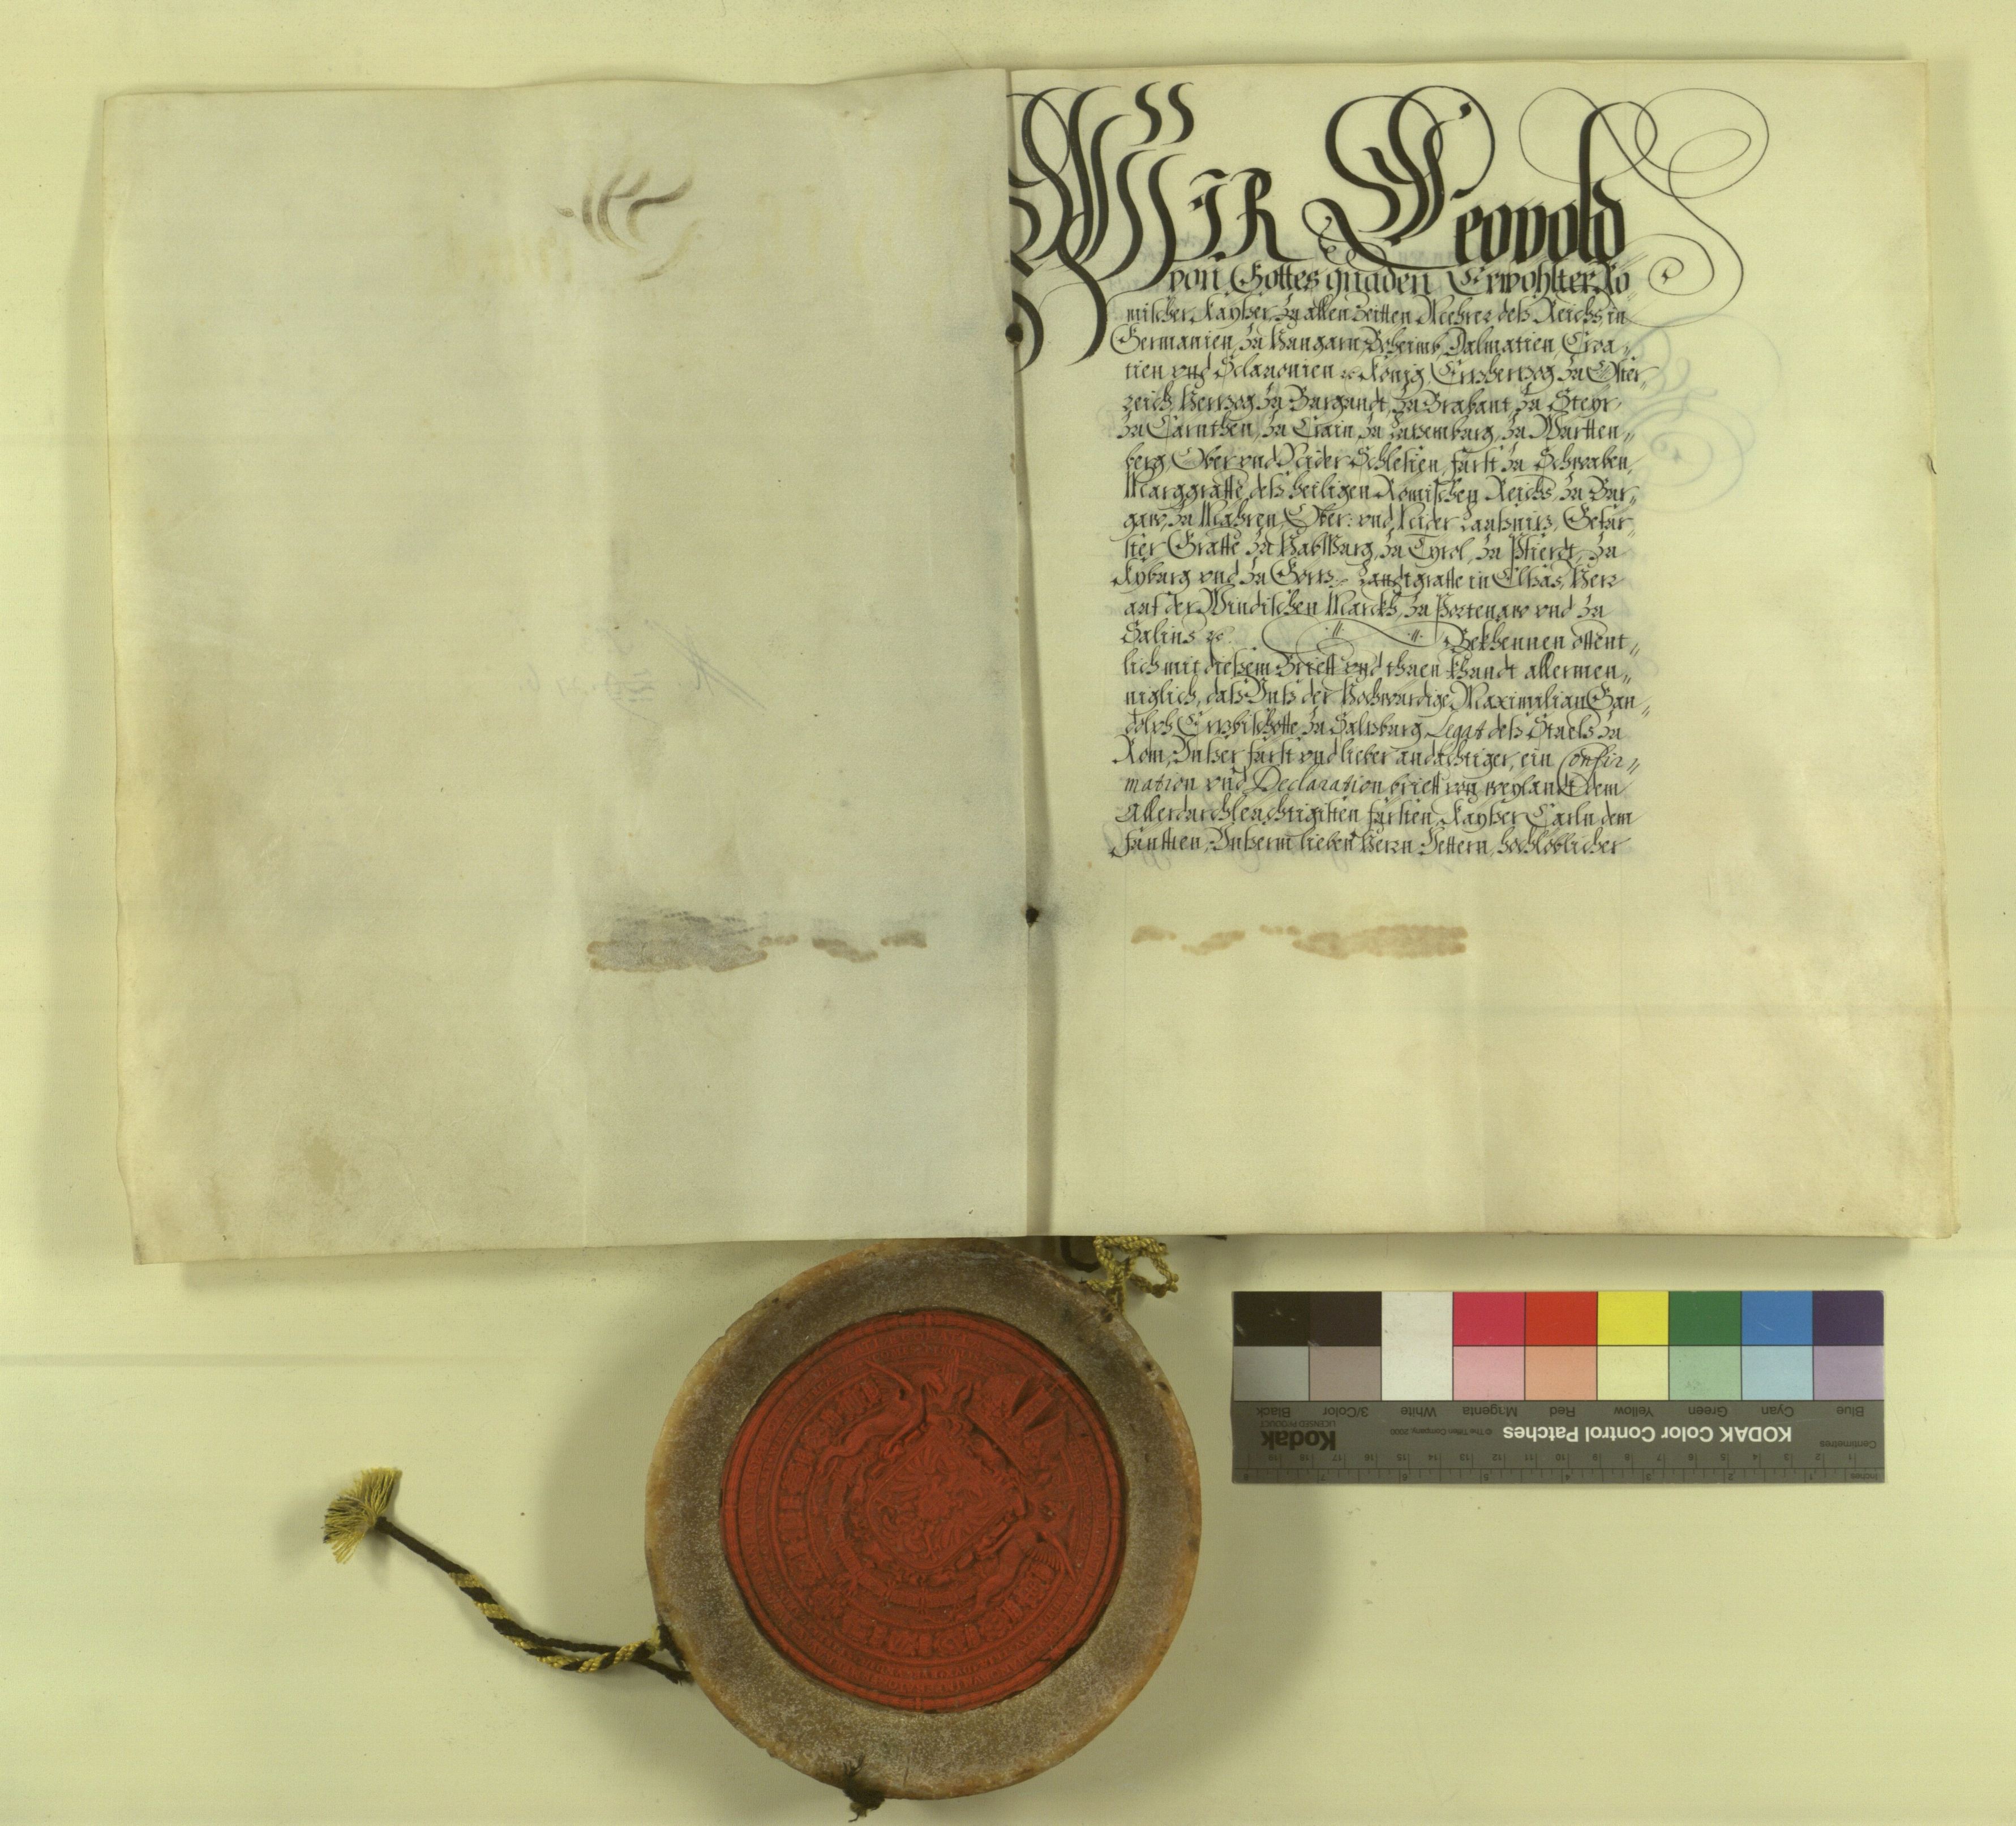 WIR Leopold
von Gottes gnaden Erwöhlter Rö
mischer Kayßer, Zu allen Zeitten Mehrer deß Reichs, in
Germanien, Zu Hungarn, Böheimb, Dalmatien, Croa„
tien vnd Sclauonien ꝛc. König, Ertzhertzog Zu Öster„
reich, Hertzog Zu Burgundt, Zu Brabant, Zu Steyr,
Zu Cärnthen, Zu Crain, Zu Luxemburg, Zu Württen„
berg, Ober vnd Nider Schlesien, fürst Zu Schwaben,
Marggraffe, deß heiligen Römischen Reichs, Zu Bur„
gaw, Zu Mähren, Ober: vnd Nider Laußnitz, Gefür„
ster Graffe Zu Habspurg, Zu Tyrol, Zu Pfierdt, Zu
Kyburg vnd Zu Görtz, Landtgraffe in Elsäs, Herr
auf der Windischen Marckh, Zu Portenaw vnd Zu
Salins ꝛc. Bekhennen öffent„
lich mit dießem Brieff vnd thuen khundt allermen„
niglich, daß Vnß der Hochwürdige Maximilian Gan„
dolph Ertzbischoffe Zu Saltzburg Legat deß Stuels Zu
Rom, Vnßer fürst vnd lieber andächtiger, ein Confir„
mation vnd Declaration brieff von weylandt dem
Allerdurchleuchtigisten fürsten, Kayßer Carln dem
fünfften, Vnßerm lieben Herrn Vettern, hochlöblicher
KODAK Color Control Patches
Kodak
LICENSED PRODUCT
© The Tiffen Company, 2000
Blue Cyan Green Yellow Red Magenta White 3/Color Black
Centimetres
Inches